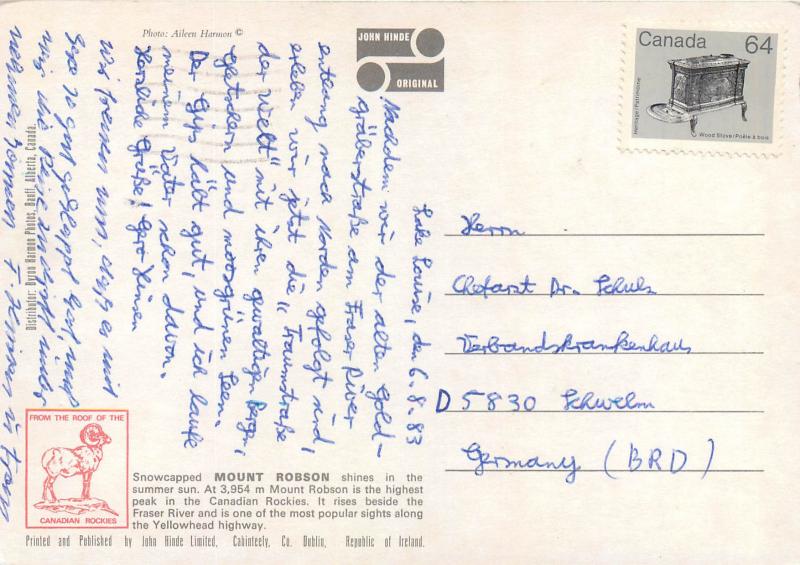 Photo: Aileen Harmon ©
JOHN HINDE
ORIGINAL
Canada 64
Heritage/Patrimoine
Wood Stove/Poêle à bois
Lake Louise, den 6.8.83
Nachdem wir der alten Gold-
gräberstraße am Fraser River
entlang nach Norden gefolgt sind,
erleben wir jetzt die "Traumstraße
der Welt" mit ihren gewaltigen Bergen,
Gletschern und moosgrünen Seen.
Der Gips hält gut, und ich laufe
meinem Vater schon davon.
Herzliche Grüße! Gero Hensen
Wir freuen uns, daß es mit
Gero so gut geklappt hat, und
wir die Reise
nehmen konnten
Herrn
Chefarzt Dr. Schulz
Verbandskrankenhaus
D 5830 Schwelm
Germany (BRD)
Distributor: Byron Harmon Photos, Banff, Alberta, Canada.
FROM THE ROOF OF THE
CANADIAN ROCKIES
Snowcapped MOUNT ROBSON shines in the
summer sun. At 3,954 m Mount Robson is the highest
peak in the Canadian Rockies. It rises beside the
Fraser River and is one of the most popular sights along
the Yellowhead highway.
Printed and Published by John Hinde Limited, Cabinteely, Co. Dublin, Republic of Ireland.